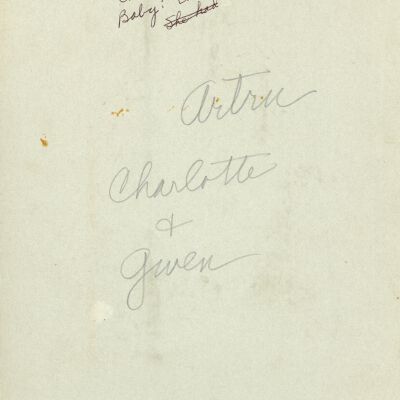 Baby!
She had
Artru
Charlotte
&
Gwen